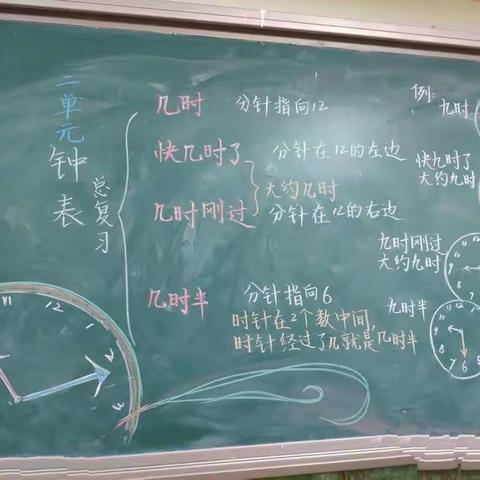 二单元钟表
总复习
几时 分针指向12
快几时了 分针在12的左边
大约几时
几时刚过 分针在12的右边
几时半 分针指向6
时针在2个数中间,
时针经过了几就是几时半
例:
九时
快九时了
大约九时
九时刚过
大约九时
九时半
12
1
2
3